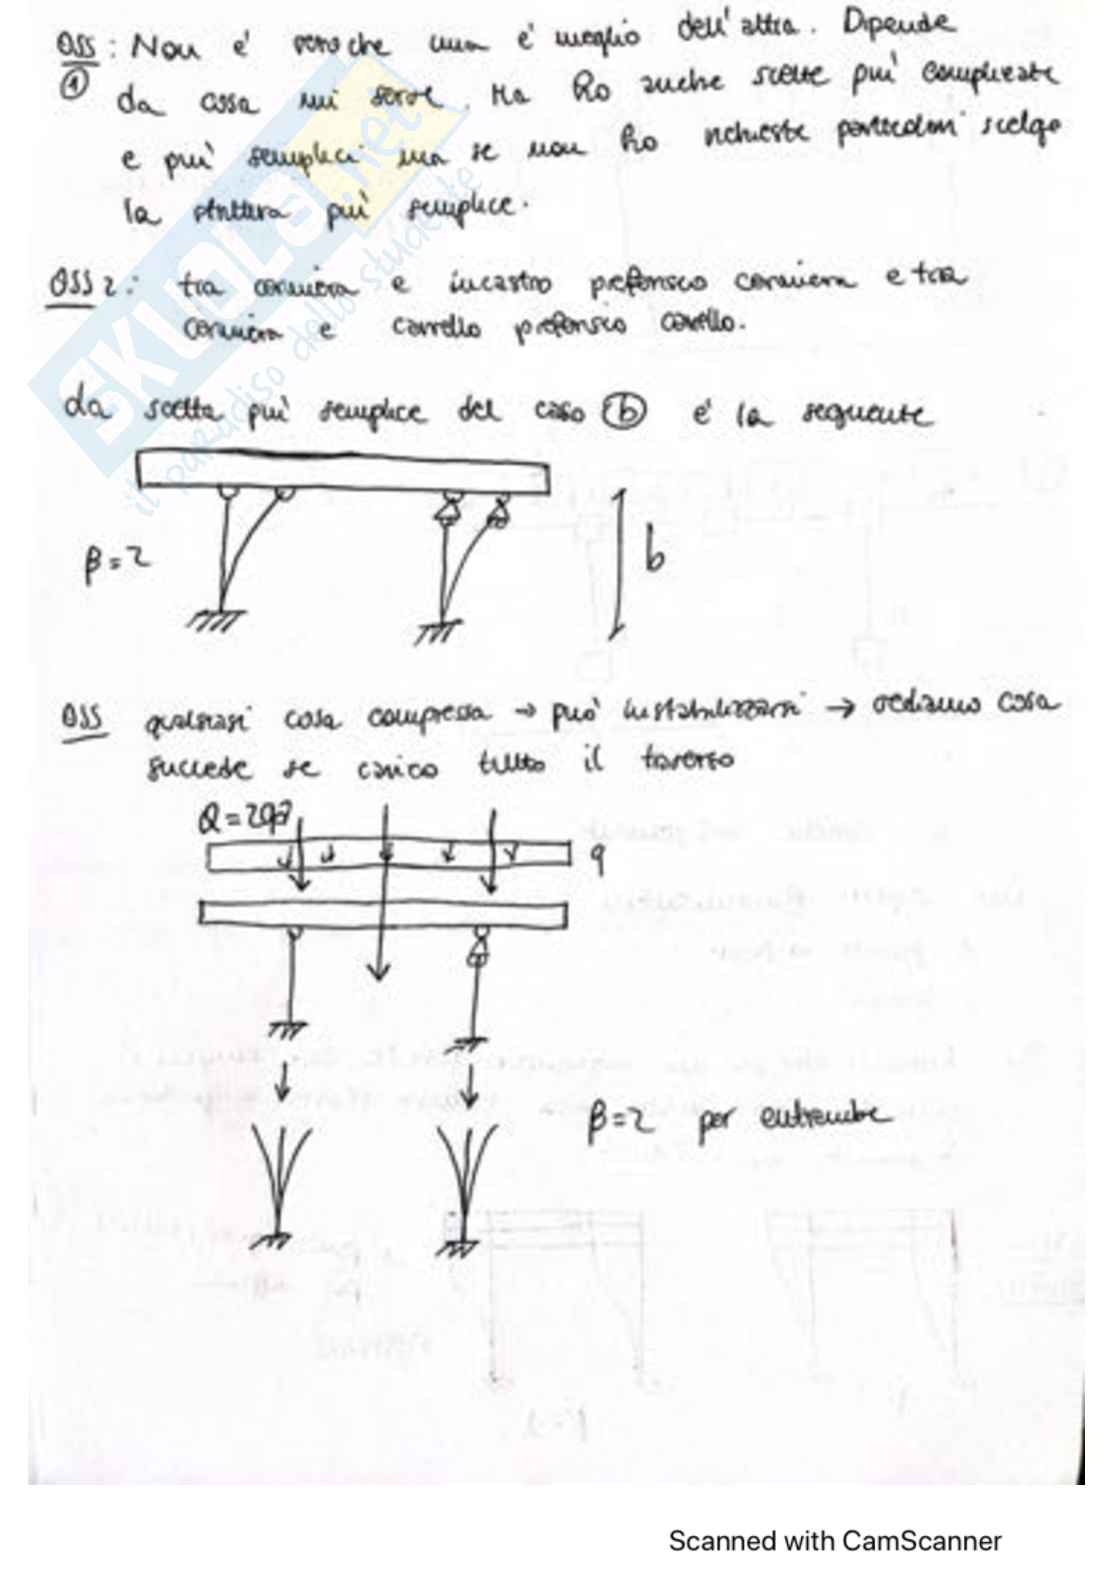 OSS : Non e' vero che una e' meglio dell'altra. Dipende
① da cosa mi serve. Ma ho anche scelte più complicate
e più semplici ma se non ho richieste particolari scelgo
la struttura più semplice.
OSS 2 : tra cerniera e incastro preferisco cerniera e tra
cerniera e carrello preferisco carrello.
da scelta più semplice del caso ⓑ e' la seguente
β=2
b
OSS qualsiasi cosa compressa → può instabilizzarsi → vediamo cosa
succede se carico tutto il traverso
Q=2qa
q
β=2 per entrambe
SKUOLA.net
il paradiso dello studente
Scanned with CamScanner